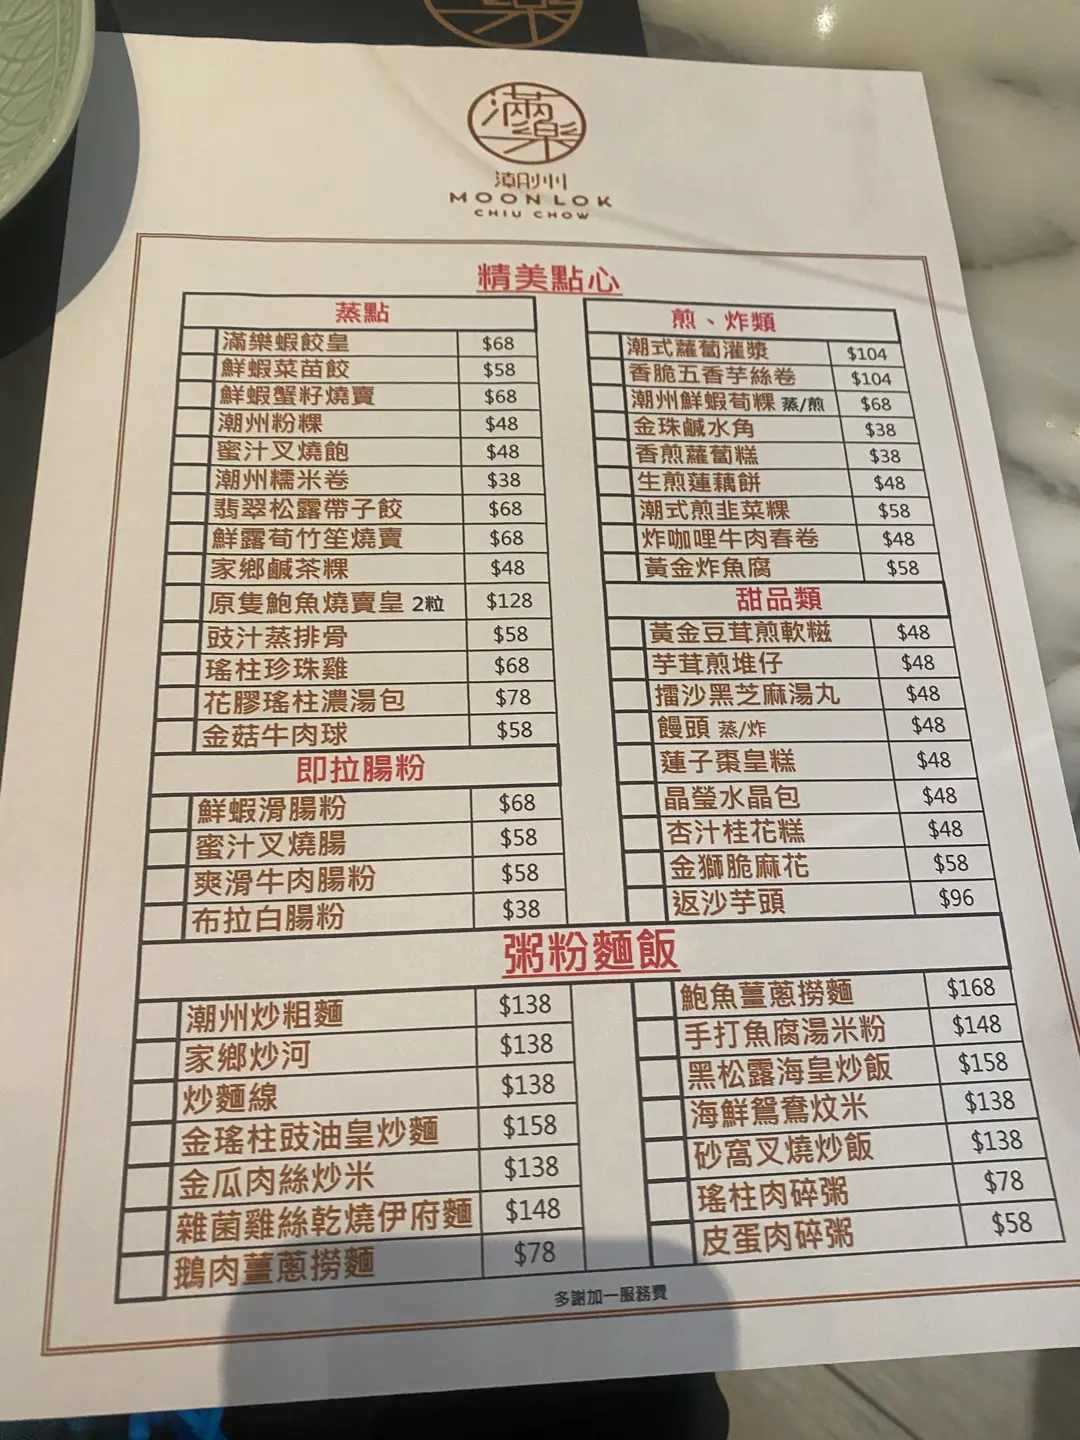 滿樂
潮州
MOON LOK
CHIU CHOW
精美點心
蒸點
滿樂蝦餃皇 $68
鮮蝦菜苗餃 $58
鮮蝦蟹籽燒賣 $68
潮州粉粿 $48
蜜汁叉燒飽 $48
潮州糯米卷 $38
翡翠松露帶子餃 $68
鮮露荀竹笙燒賣 $68
家鄉鹹茶粿 $48
原隻鮑魚燒賣皇 2粒 $128
豉汁蒸排骨 $58
瑤柱珍珠雞 $68
花膠瑤柱濃湯包 $78
金菇牛肉球 $58
即拉腸粉
鮮蝦滑腸粉 $68
蜜汁叉燒腸 $58
爽滑牛肉腸粉 $58
布拉白腸粉 $38
煎、炸類
潮式蘿蔔灌漿 $104
香脆五香芋絲卷 $104
潮州鮮蝦荀粿 蒸/煎 $68
金珠鹹水角 $38
香煎蘿蔔糕 $38
生煎蓮藕餅 $48
潮式煎韭菜粿 $58
炸咖哩牛肉春卷 $48
黃金炸魚腐 $58
甜品類
黃金豆茸煎軟糍 $48
芋茸煎堆仔 $48
擂沙黑芝麻湯丸 $48
饅頭 蒸/炸 $48
蓮子棗皇糕 $48
晶瑩水晶包 $48
杏汁桂花糕 $48
金獅脆麻花 $58
返沙芋頭 $96
粥粉麵飯
潮州炒粗麵 $138
家鄉炒河 $138
炒麵線 $138
金瑤柱豉油皇炒麵 $158
金瓜肉絲炒米 $138
雜菌雞絲乾燒伊府麵 $148
鵝肉薑蔥撈麵 $78
鮑魚薑蔥撈麵 $168
手打魚腐湯米粉 $148
黑松露海皇炒飯 $158
海鮮鴛鴦炆米 $138
砂窩叉燒炒飯 $138
瑤柱肉碎粥 $78
皮蛋肉碎粥 $58
多謝加一服務費